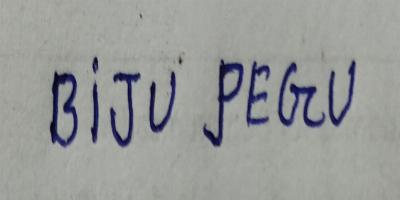 BiJU PEGU